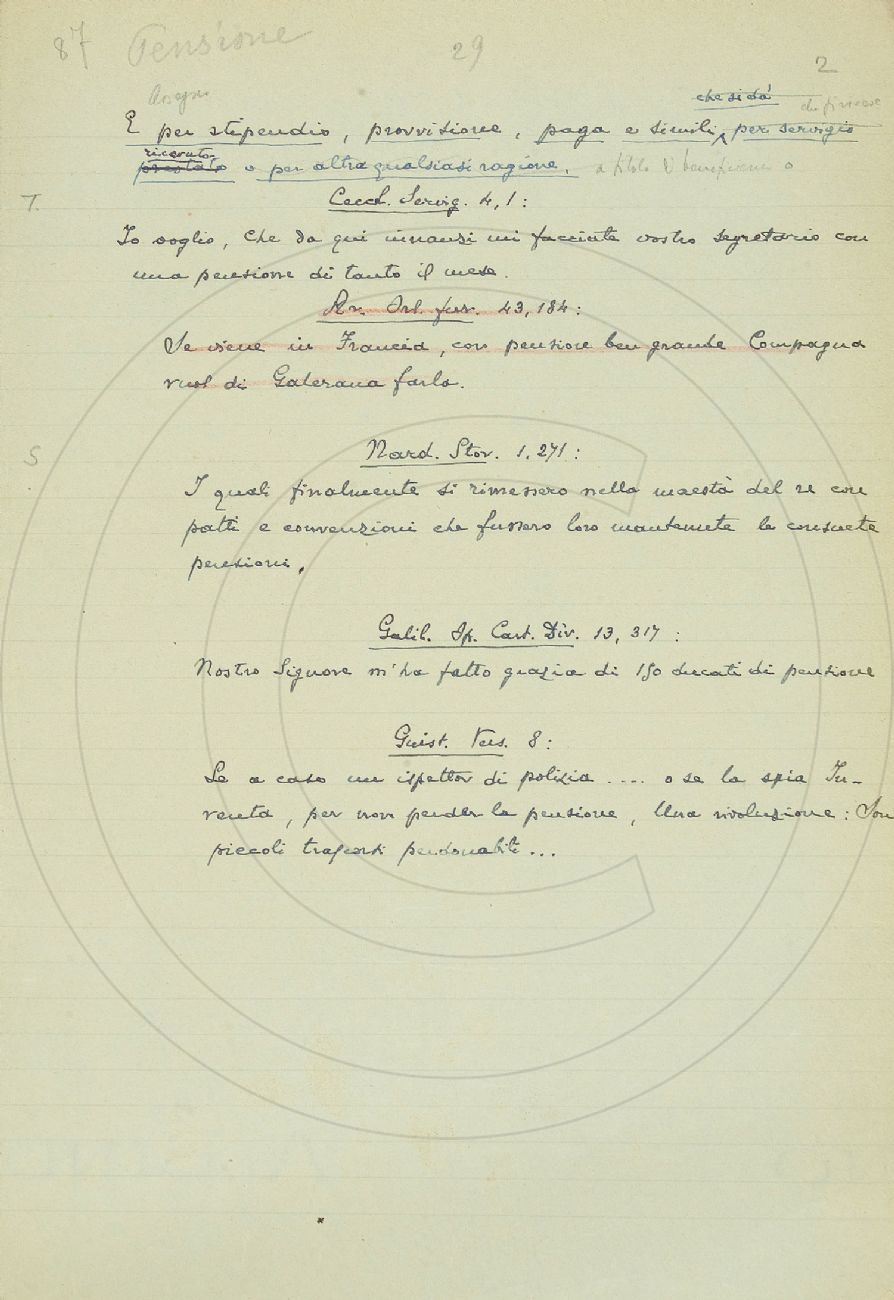 87 Pensione 29 2
Assegno
che si dà
E per stipendio, provvisione, paga e simili, per servigio
ricevuto
prestato o per altra qualsiasi ragione. a titolo di beneficenza o
T. Cecch. Servig. 4, 1:
Io voglio, che da qui innanzi mi facciate vostro segretario con
una pensione di tanto il mese.
Ar. Orl. fur. 43, 184:
Se viene in Francia, con pensione ben grande Compagna
vuol di Galerana farla.
S Nard. Stor. 1, 271:
I quali finalmente si rimessero nella maestà del re con
patti e convenzioni che fussero loro mantenute le consuete
pensioni.
Galil. Op. Cart. Div. 13, 317:
Nostro Signore m'ha fatto grazia di 150 ducati di pensione
Giust. Vers. 8:
Se a caso un ispettor di polizia .... o se la spia In-
venta, per non perder la pensione, Una rivoluzione: Son
piccoli trasporti perdonabili...